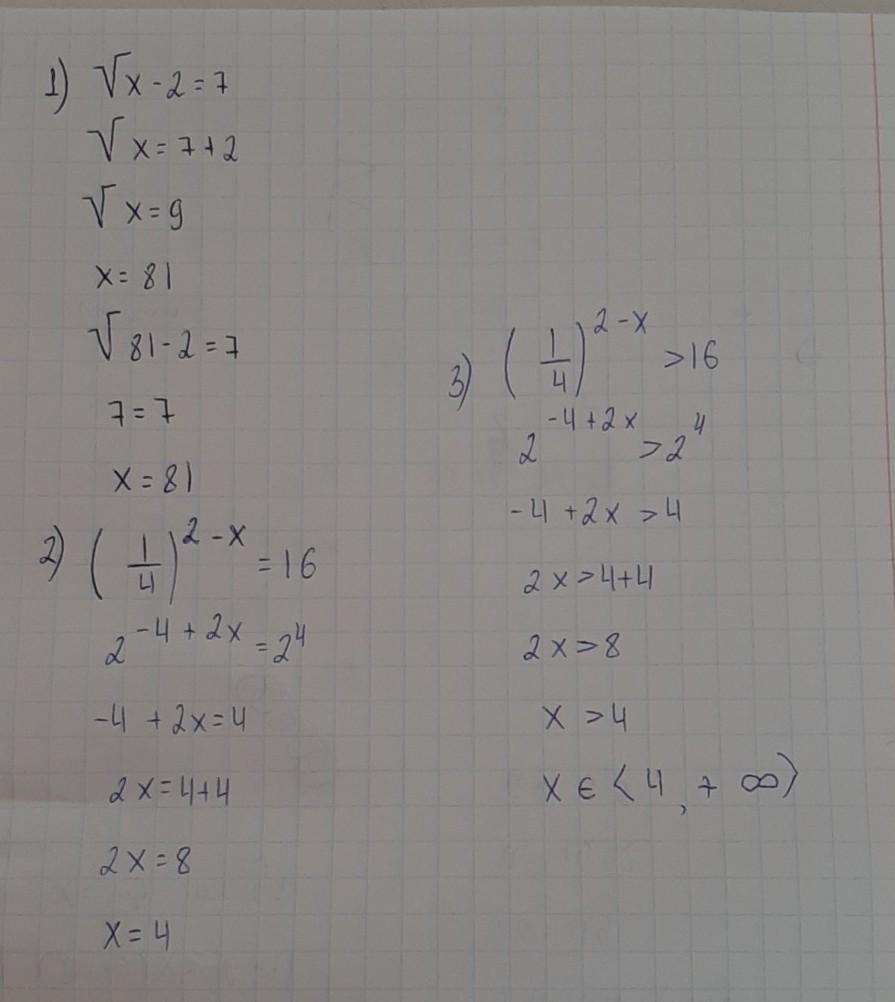 1) √x - 2 = 7
√x = 7 + 2
√x = 9
x = 81
√81 - 2 = 7
7 = 7
x = 81
2) (1/4)^{2 - x} = 16
2^{-4 + 2x} = 2^4
-4 + 2x = 4
2x = 4+4
2x = 8
x = 4
3) (1/4)^{2 - x} > 16
2^{-4 + 2x} > 2^4
-4 + 2x > 4
2x > 4+4
2x > 8
x > 4
x ∈ ⟨4, + ∞⟩